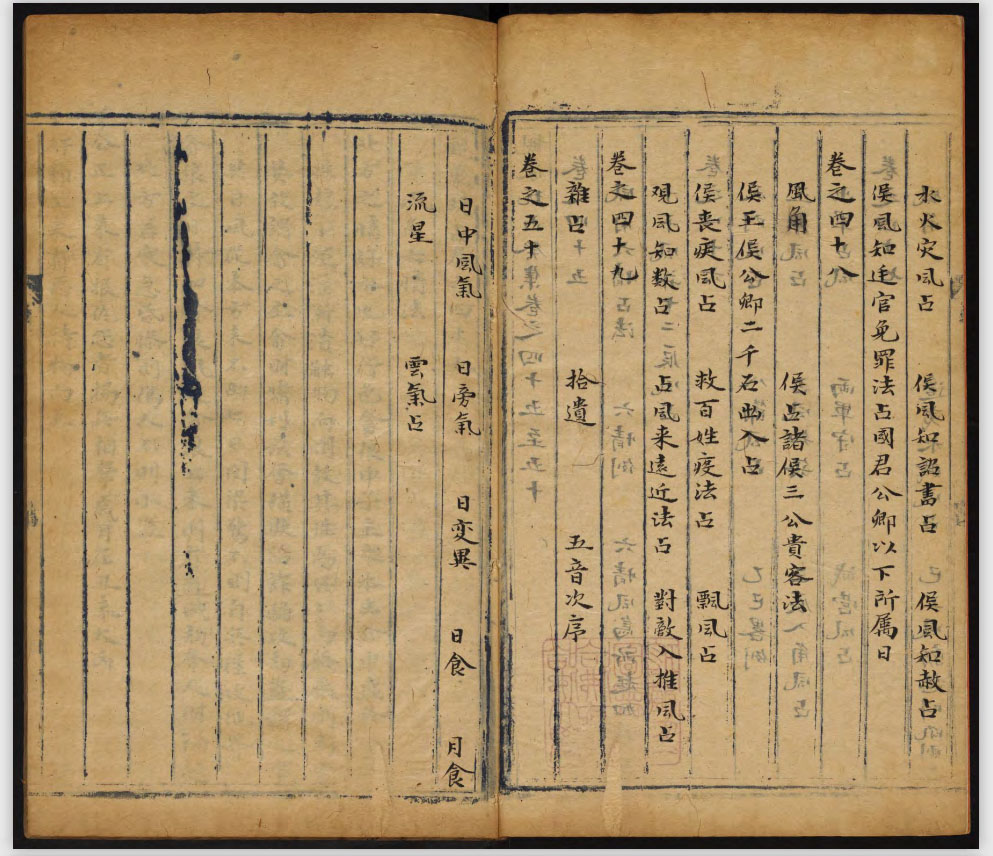 水火灾風占 侯風知詔書占 侯風知赦占
侯風知迁官免罪法占國君公卿以下所属日
卷之四十八
風角 侯占諸侯三公貴客法
侯王侯公卿二千石出入占
侯丧疾風占 救百姓疫法占 飄風占
观風知数占 占風来遠近法占 對敵入推風占
卷之四十九
雜占 拾遺 五音次序
卷之五十
日中風氣 日旁氣 日变異 日食 月食
流星 雲氣占